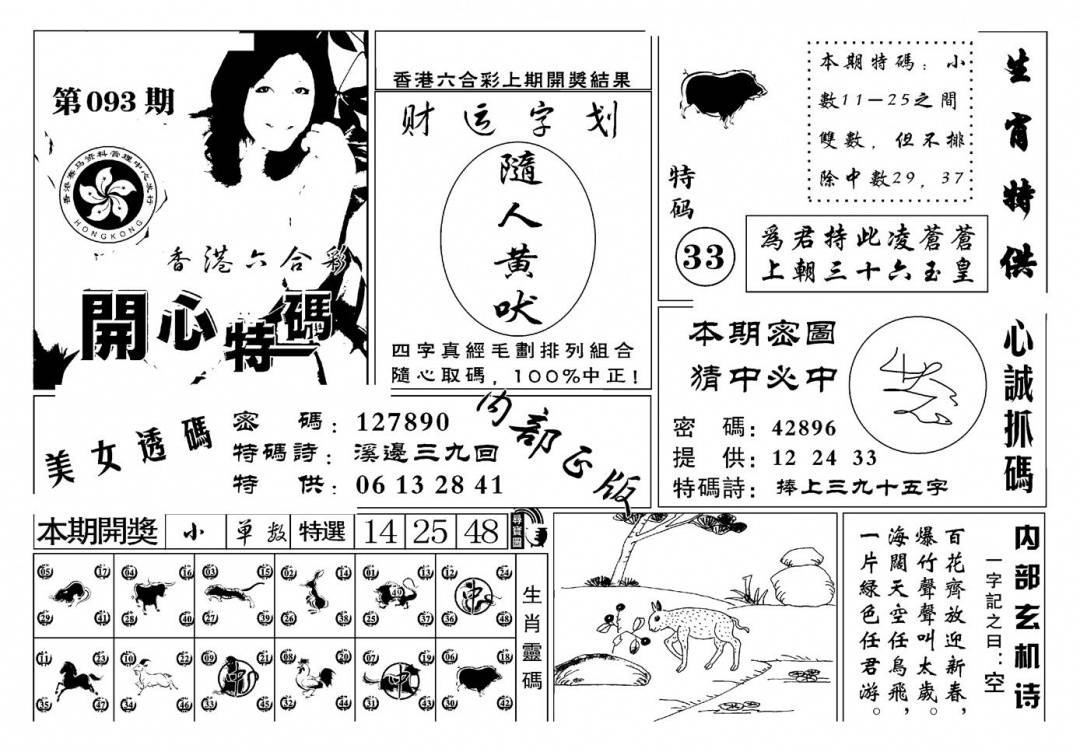 第093期
香港赛马资料管理中心发行
HONGKONG
香港六合彩
開心特碼
香港六合彩上期開獎結果
财运字划
隨人黄吠
四字真經毛劃排列組合
隨心取碼，100%中正!
特码
33
本期特碼：小
數11－25之間
雙數，但不排
除中數29，37
為君持此凌蒼蒼
上朝三十六玉皇
生肖特供
美女透碼
密碼：127890
特碼詩：溪邊三九回
特供：06 13 28 41
内部正版
本期密圖
猜中必中
密碼：42896
提供：12 24 33
特碼詩：捧上三九十五字
心誠抓碼
本期開獎 小 单数 特選 14 25 48
05 17 04 16 03 15 02 14 01 13 12 24
49
29 41 28 40 27 39 26 38 25 37 36 48
11 23 10 22 09 21 08 20 07 19 06 18
35 47 34 46 33 45 32 44 31 43 30 42
生肖靈碼
内部玄机诗
一字記之日：空
百花齊放迎新春，
爆竹聲聲叫太歲。
海闊天空任鳥飛，
一片綠色任君游。